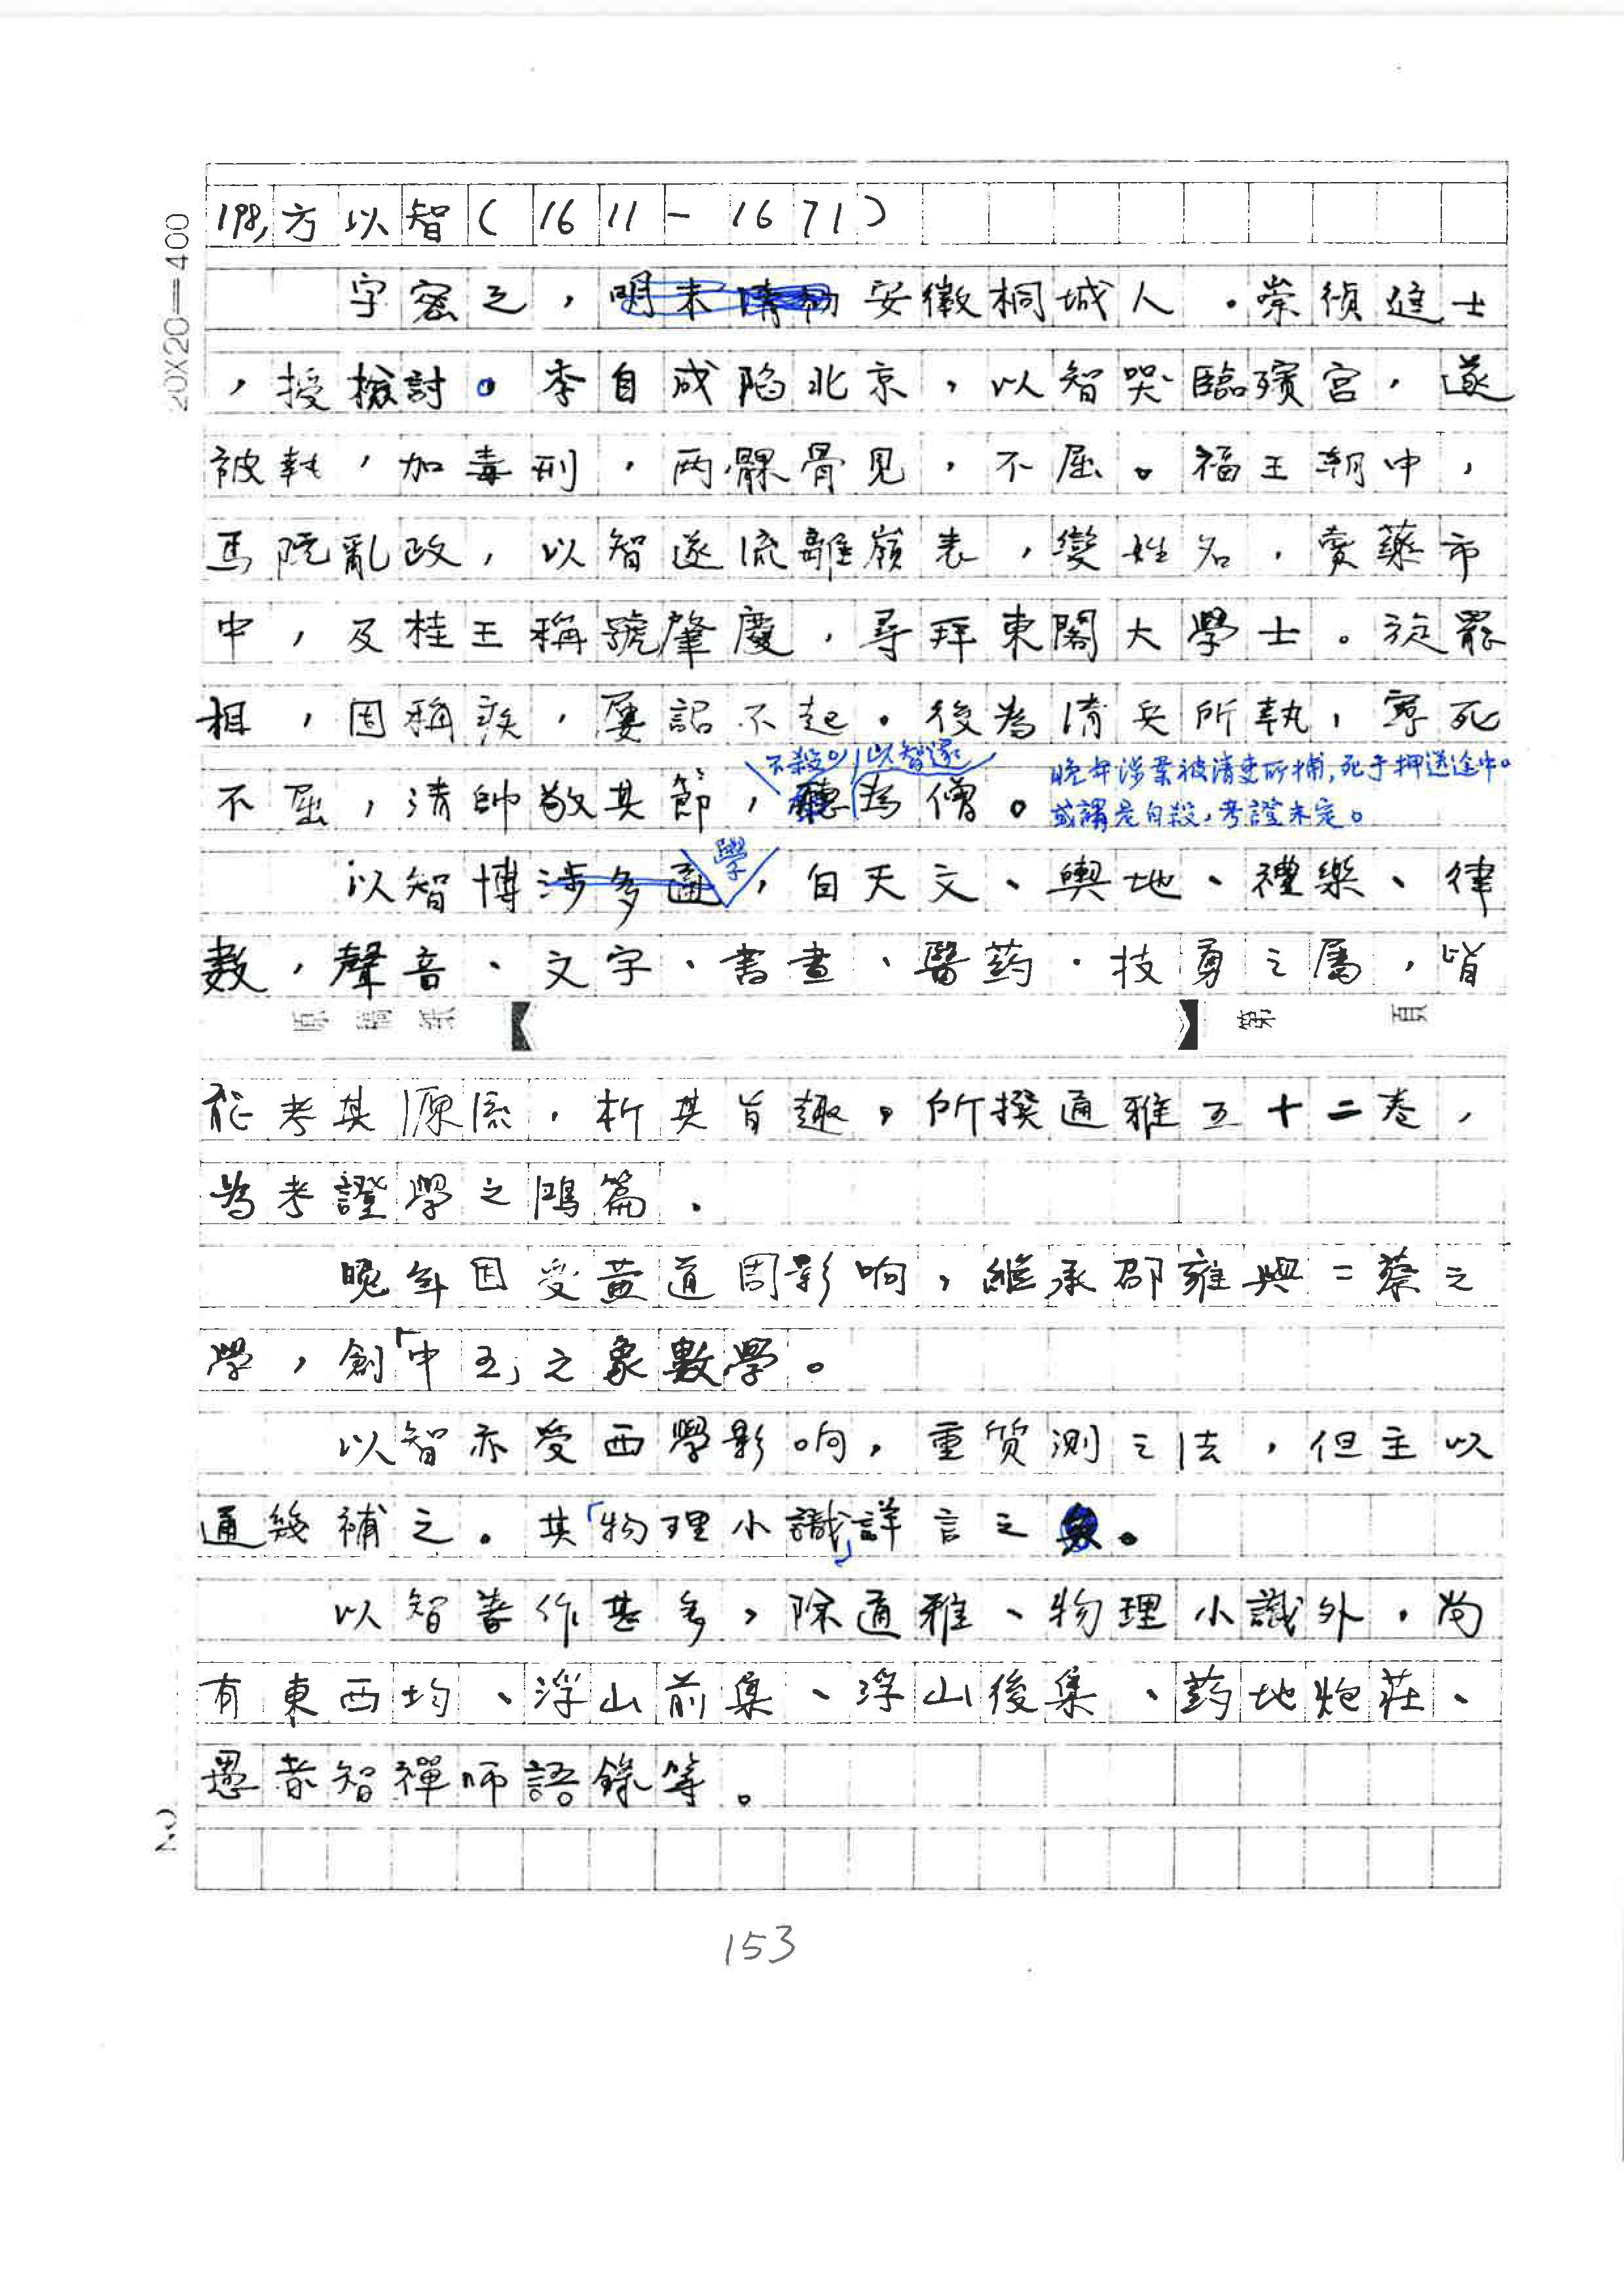 198,方以智(1611-1671)
字密之,明末清初安徽桐城人。崇禎進士
,授檢討。李自成陷北京,以智哭臨殯宮,遂
被執,加毒刑,兩髁骨見,不屈。福王朝中,
馬阮亂政,以智遂流離嶺表,變姓名,賣藥市
中,及桂王稱號肇慶,尋拜東閣大學士。旋罷
相,固稱疾,屢詔不起。後為清兵所執,寧死
不殺。以智遂
晚年涉案被清吏所捕,死于押送途中。
或謂是自殺,考證未定。
不屈,清帥敬其節,聽為僧。
學
以智博涉多通,自天文、輿地、禮樂、律
數,聲音、文字、書畫、醫药、技勇之屬,皆
原稿紙 第 頁
能考其源流,析其旨趣,所撰通雅五十二卷,
為考證學之鴻篇.
晚年因受黃道周影响,繼承邵雍與二蔡之
學,創「中五」之象數學。
以智亦受西學影响,重質測之法,但主以
通幾補之。其「物理小識」詳言之。
以智著作甚多,除通雅、物理小識外,尚
有東西均、浮山前集、浮山後集、药地炮莊、
愚者智禪師語錄等。
20X20=400
153